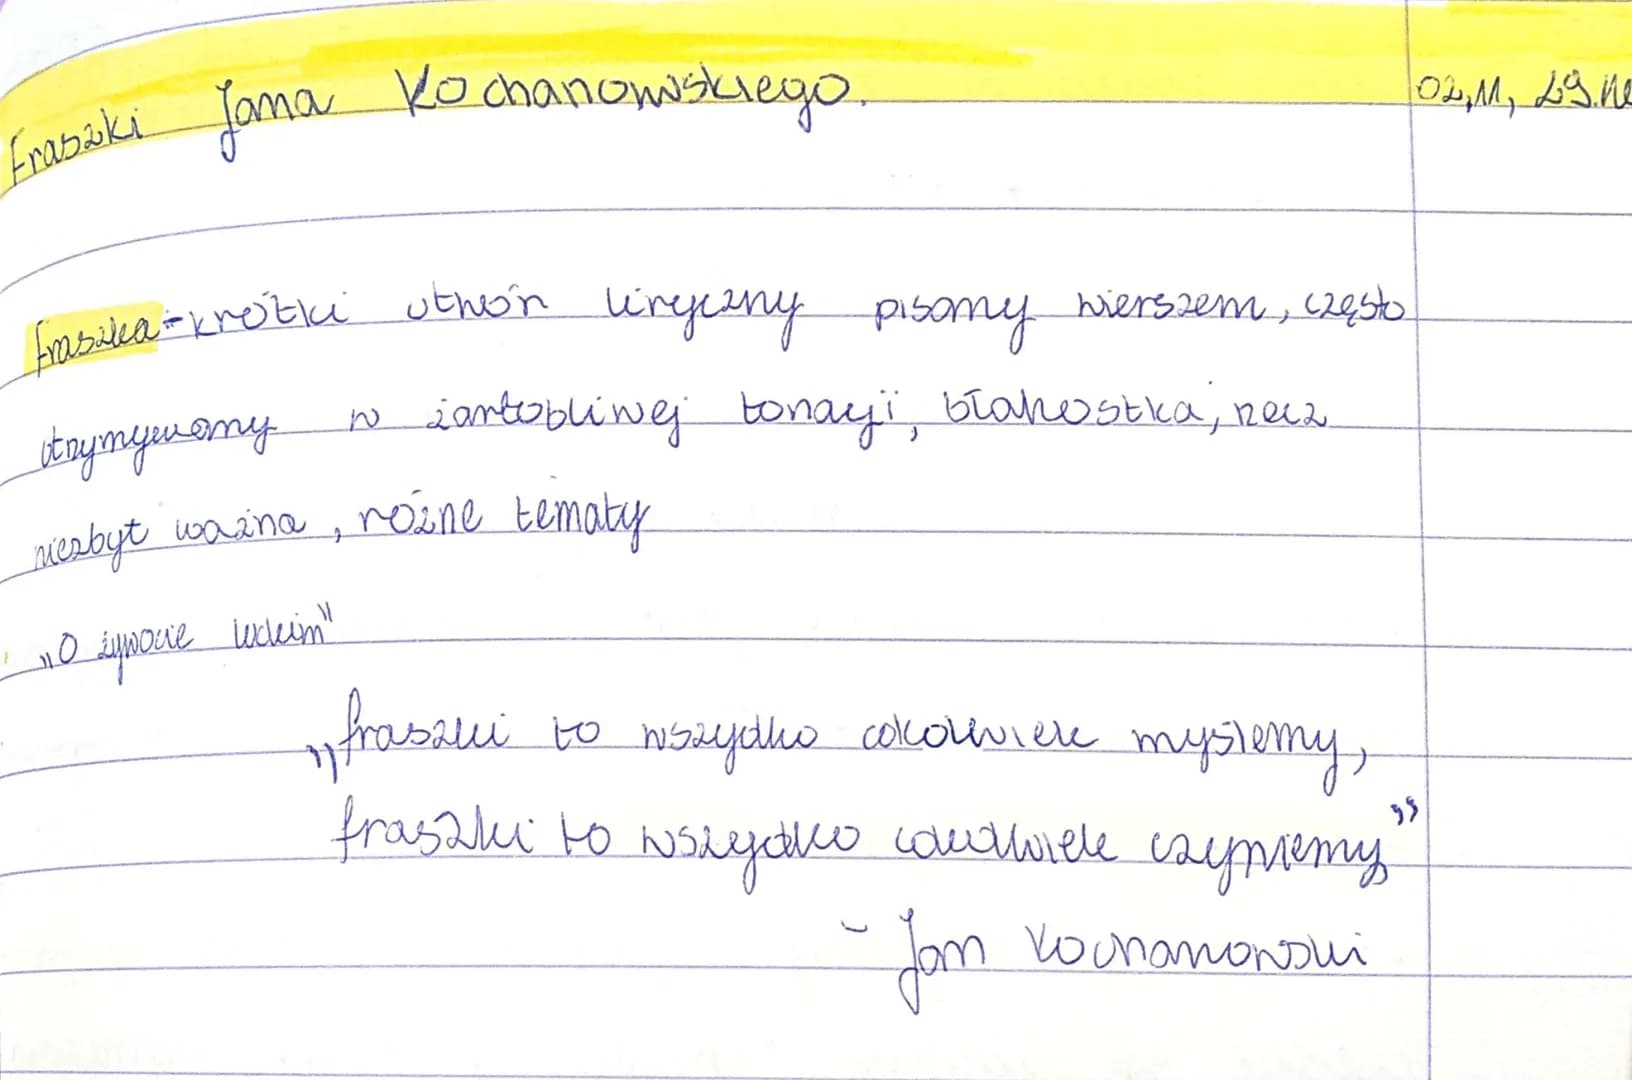 Fraszki Jana Kochanowskiego.
02,11,
fraszka - krótki utwór liryczny pisany wierszem, często
utrzymywany w żartobliwej tonacji, błahostka, rzecz
niezbyt ważna, różne tematy
„O żywocie ludzkim"
„fraszki to wszydko cokolwiek myślemy,
fraszki to wszydko cokolwiek czyniemy”
- Jan Kochanowski